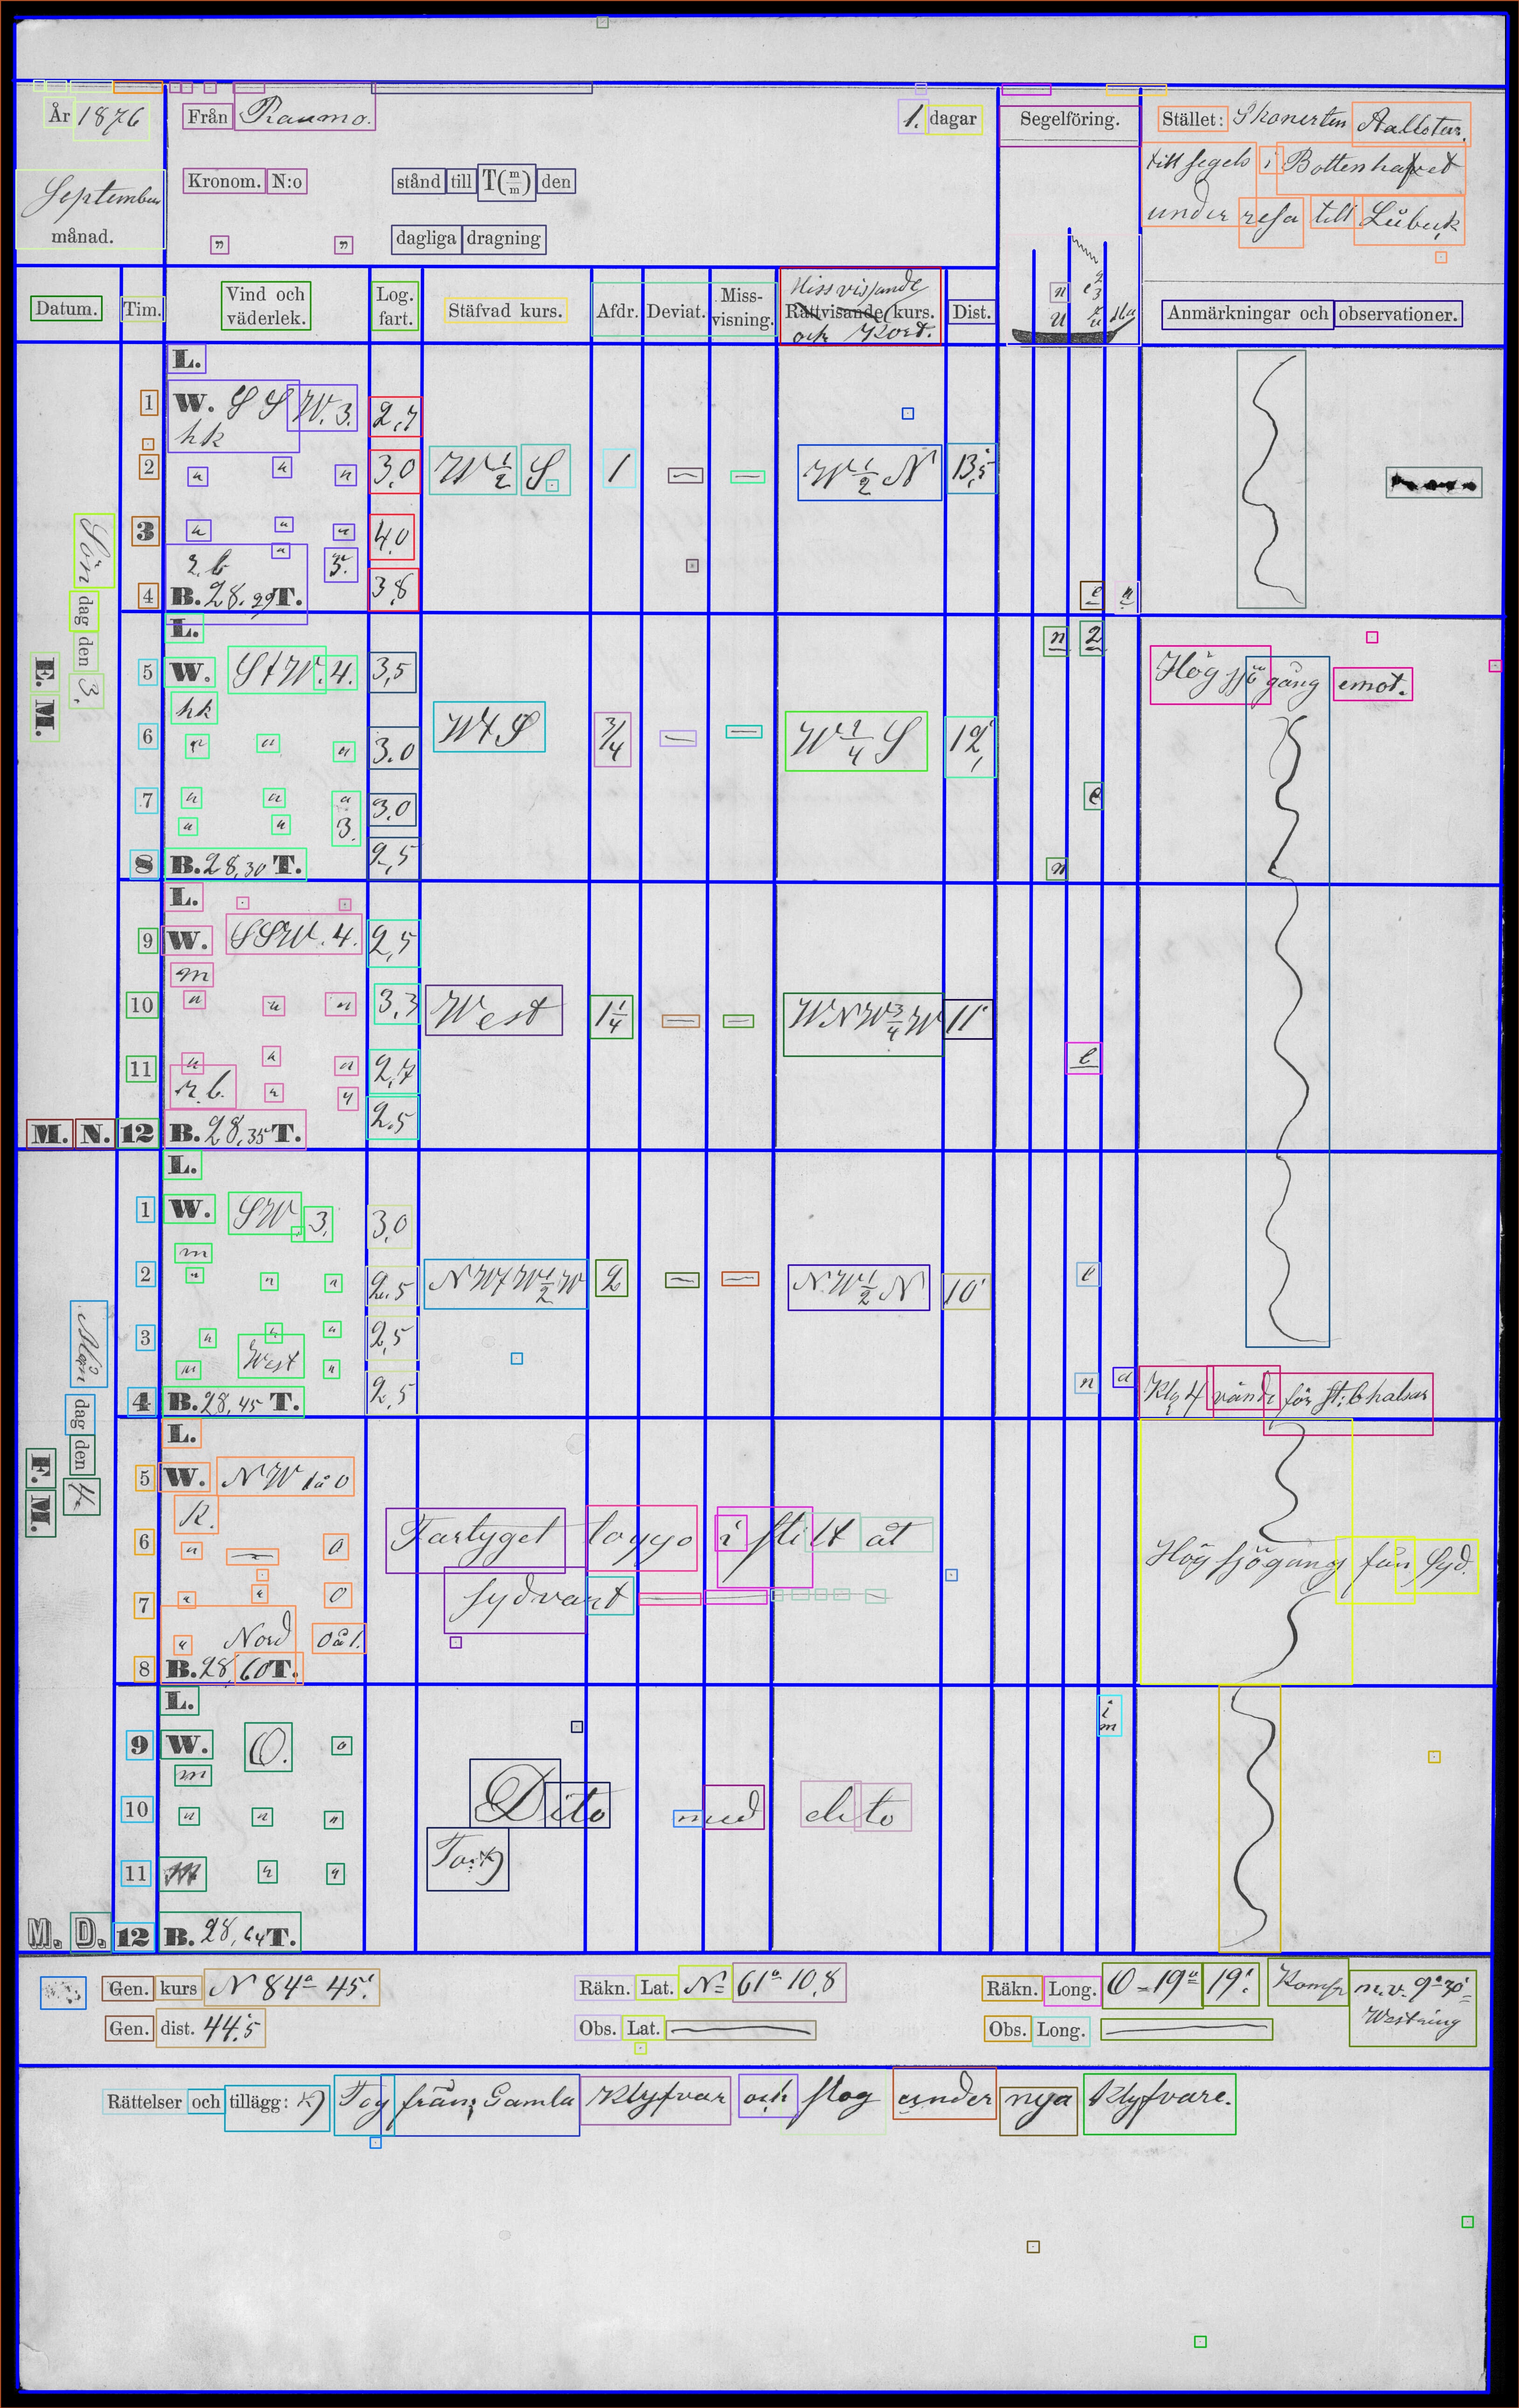 År 1876 Från Raumo. 1. dagar Segelföring. Stället: Skonerten Aallotar.
till segels i Bottenhafvet
Kronom. N:o stånd till T(m/m) den
September
under resa till Lübeck
månad. " " dagliga dragning
Datum. Tim. Vind och väderlek. Log. fart. Stäfvad kurs. Afdr. Deviat. Miss-visning. Missvisande Rättvisande kurs. och Kord. Dist. Anmärkningar och observationer.
Sön dag den 3.
E. M.
L.
1 W. S S W. 3. 2,7
hk
2 " " " 3,0 W ½ S. 1 — — W ½ N 13,5
3 " " " 4,0
r. b. " 3.
4 B. 28.29 T. 3,8
L.
5 W. StW. 4. 3,5 Hög sjögång emot.
hk
6 " " " 3.0 WtS ¾ — — W ¼ S 12,
7 " " " 3.0
" " 3.
8 B. 28,30 T. 2,5
L.
9 W. SSW. 4. 2,5
m
10 " " " 3,3 West 1¼ — — WNW ¾ W 11'
11 " " " 2,7
r. b. " "
M. N. 12 B. 28,35 T. 2.5
Mån dag den 4.
F. M.
L.
1 W. SW. 3. 3,0
m
2 " " " 2.5 NWtW ½ W 2 — — N.W ½ N 10'
3 " " " 2,5
" West "
4 B. 28,45 T. 2,5 Kl. 4 vände för St:b halsar
L.
5 W. N W 1 à 0
R.
6 " — 0 Fartyget loggo i stilt åt Hög sjögång från Syd.
7 " " 0 sydvart
" Nord 0 à 1.
8 B. 28,60 T.
L.
9 W. O. 0
m
10 " " " Dito med dito
11 " "
M. D. 12 B. 28,64 T.
Gen. kurs N 84° 45' Räkn. Lat. N= 61° 10,8 Räkn. Long. O = 19° 19'. m.v. 9° 30'
Westring
Gen. dist. 44.5 Obs. Lat. — Obs. Long. —
Rättelser och tillägg: x) Tog från Gamla Klyfvar och slog under nya Klyfvare.